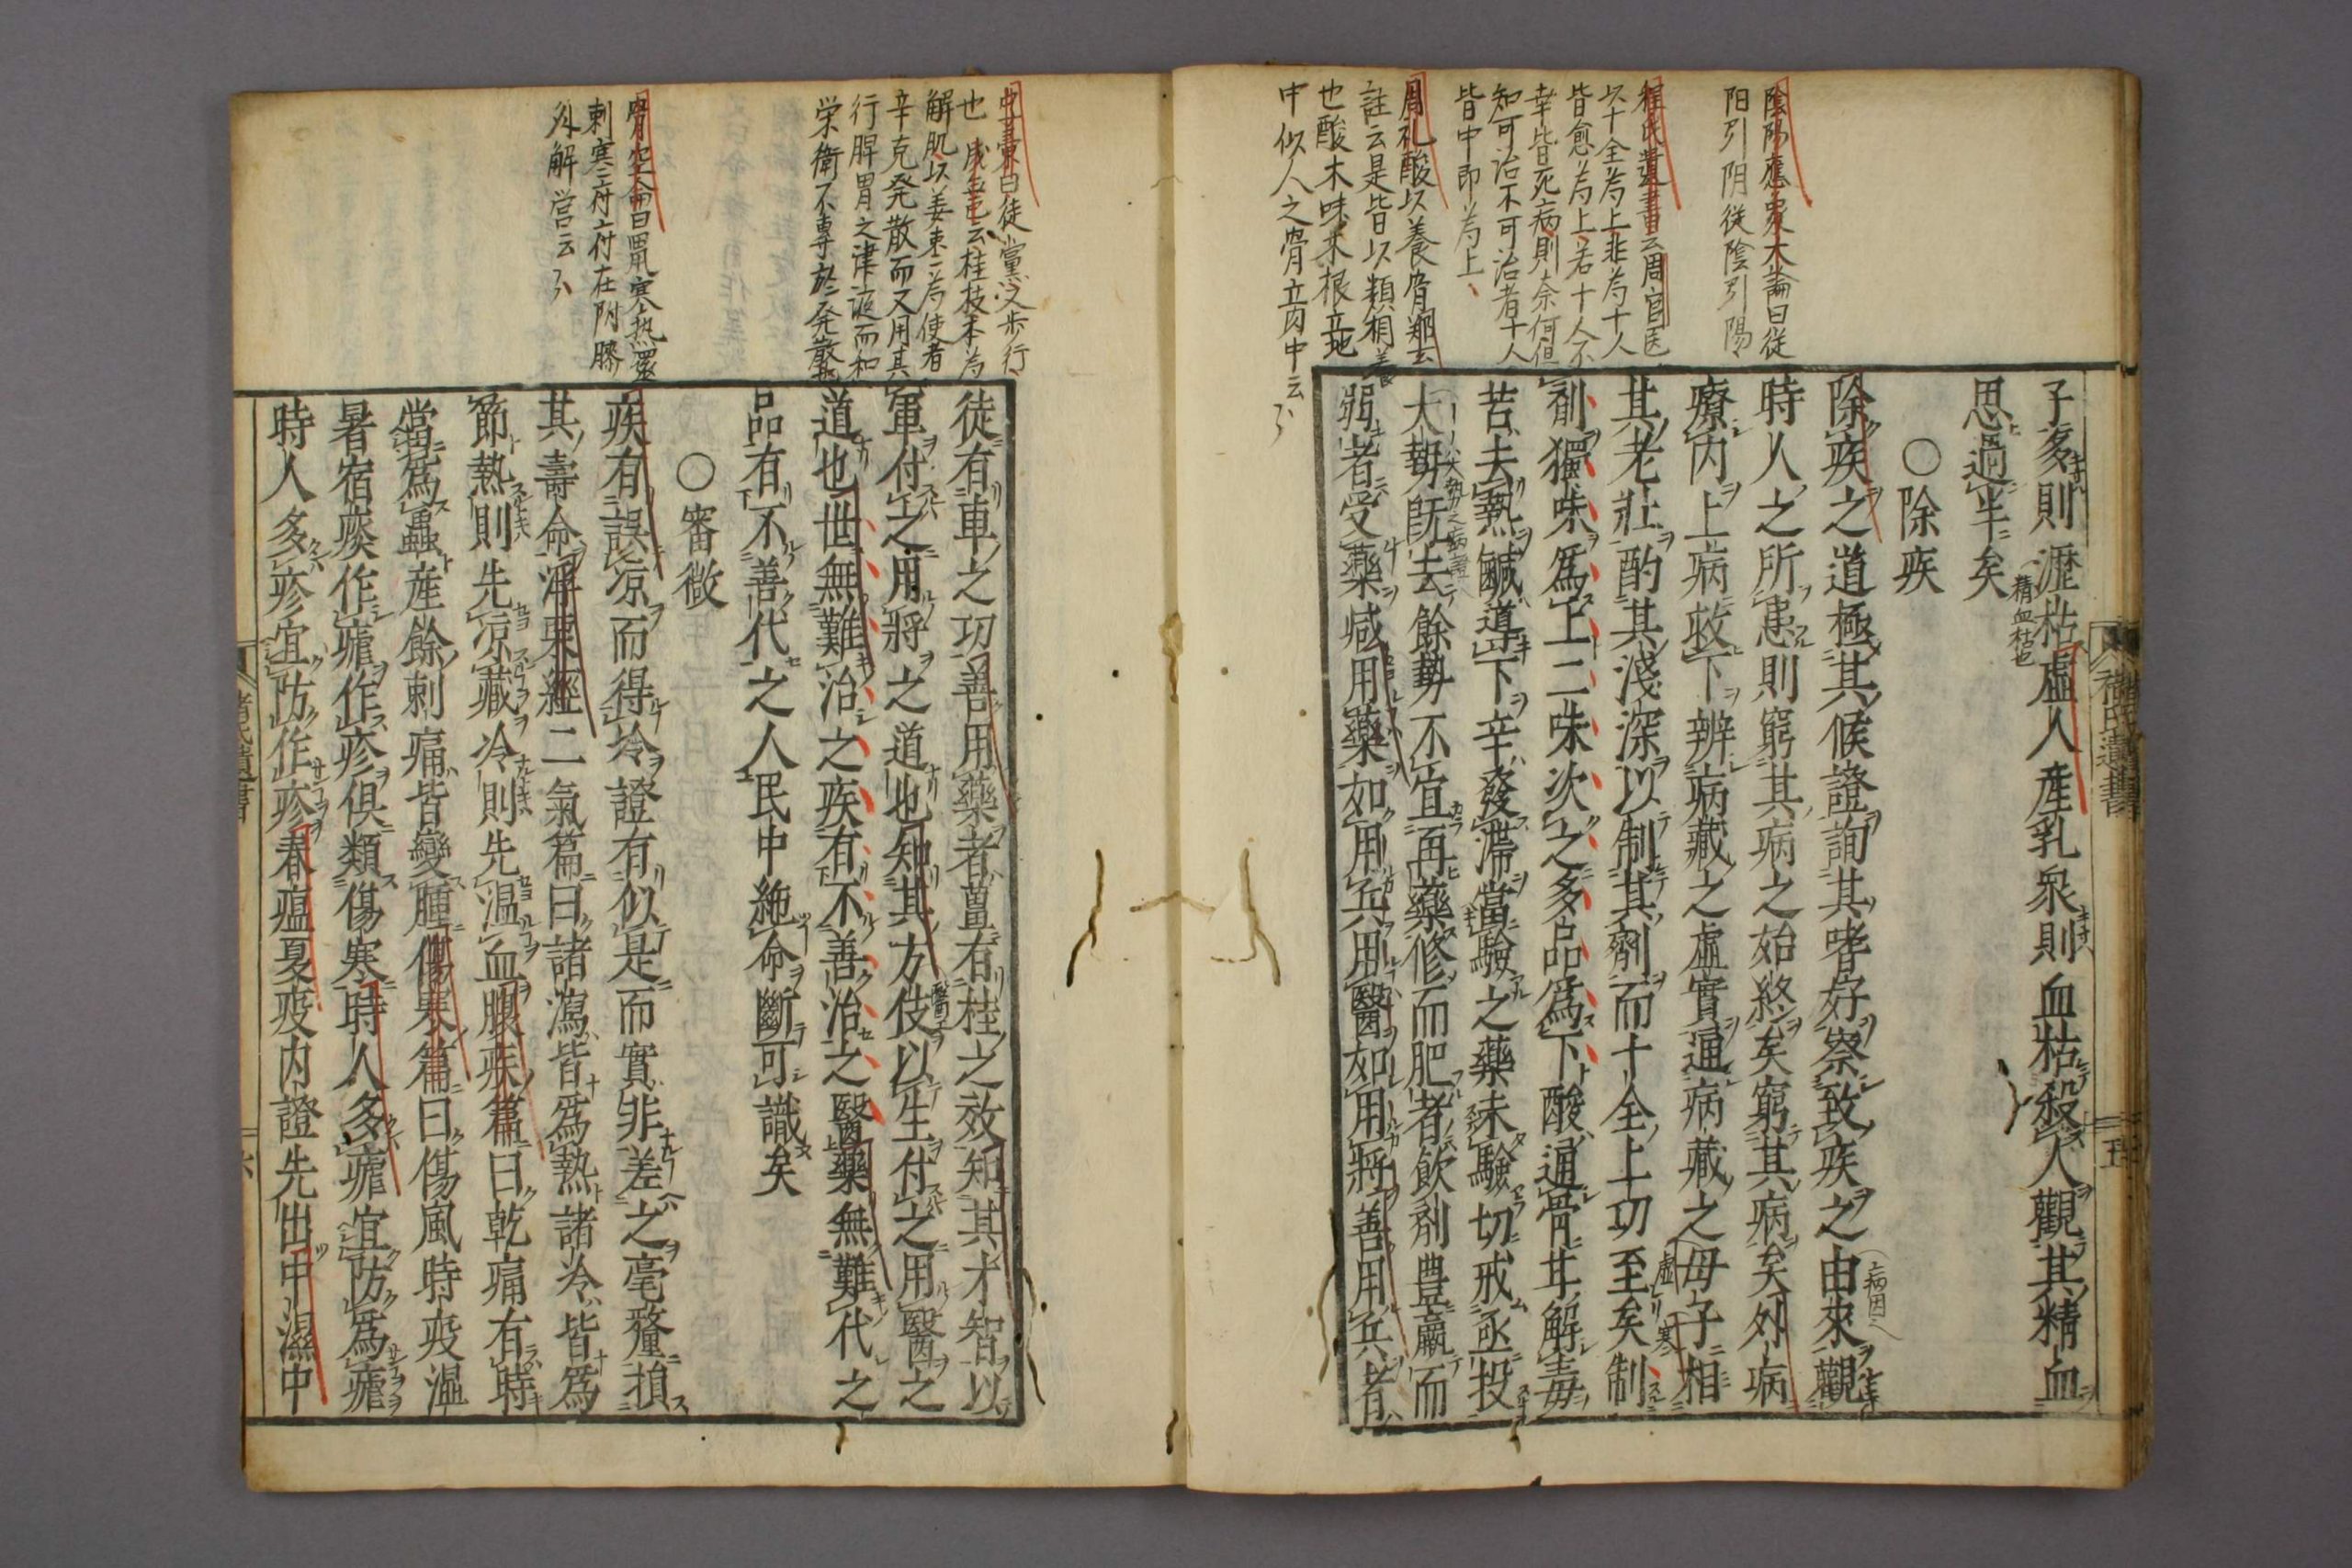 陰陽應象大論曰従
阳引阴従陰引陽
褚氏遺書云周官医
以十全為上非為十人
皆愈為上若十人不
幸皆死病則奈何但
知可治不可治者十人
皆中即為上
周礼酸以養骨鄭玄
註云是皆以類相養
也酸木味木根立地
中似人之骨立肉中云々
子多則瀝枯虛人產乳衆則血枯殺人觀其精血
精血枯也
思過半矣
○除疾
除疾之道極其候證詢其嗜好察致疾之由來觀
時人之所患則窮其病之始終矣窮其病矣外病
療內上病救下辨病藏之虛實通病藏之母子相
其老壯酌其淺深以制其劑而十全上功至矣制
劑獨味爲上二味次之多品爲下酸通骨甘解毒
苦去熱鹹導下辛發滯當驗之藥未驗切戒亟投
大勢旣去餘勢不宜再藥修而肥者飲劑豊羸而
弱者受藥減用藥如用兵用醫如用將善用兵者
褚氏遺書
五
也 成無己云桂枝本為
解肌以姜棗為使者
辛克発散而又用其
行脾胃之津液而和
栄衛不專於発散也
骨空論曰胃寒热還
刺寒府々在附膝
外解営云々
徒有車之功善用藥者薑有桂之效知其才智以
軍付之用將之道也知其方伎以生付之用醫之
道也世無難治之疾有不善治之醫藥無難代之
品有不善代之人民中絶命斷可識矣
○審微
疾有誤凉而得冷證有似是而實非差之毫釐損
其壽命浮粟經二氣篇曰諸瀉皆爲熱諸冷皆爲
節熱則先凉藏冷則先温血腹疾篇曰乾痛有時
當爲蟲產餘刺痛皆變腫傷寒篇曰傷風時疫温
暑宿痰作瘧作疹俱類傷寒時人多瘧宜防爲瘧
時人多疹宜防作疹春瘟夏疫内證先出中濕中
褚氏遺書
六